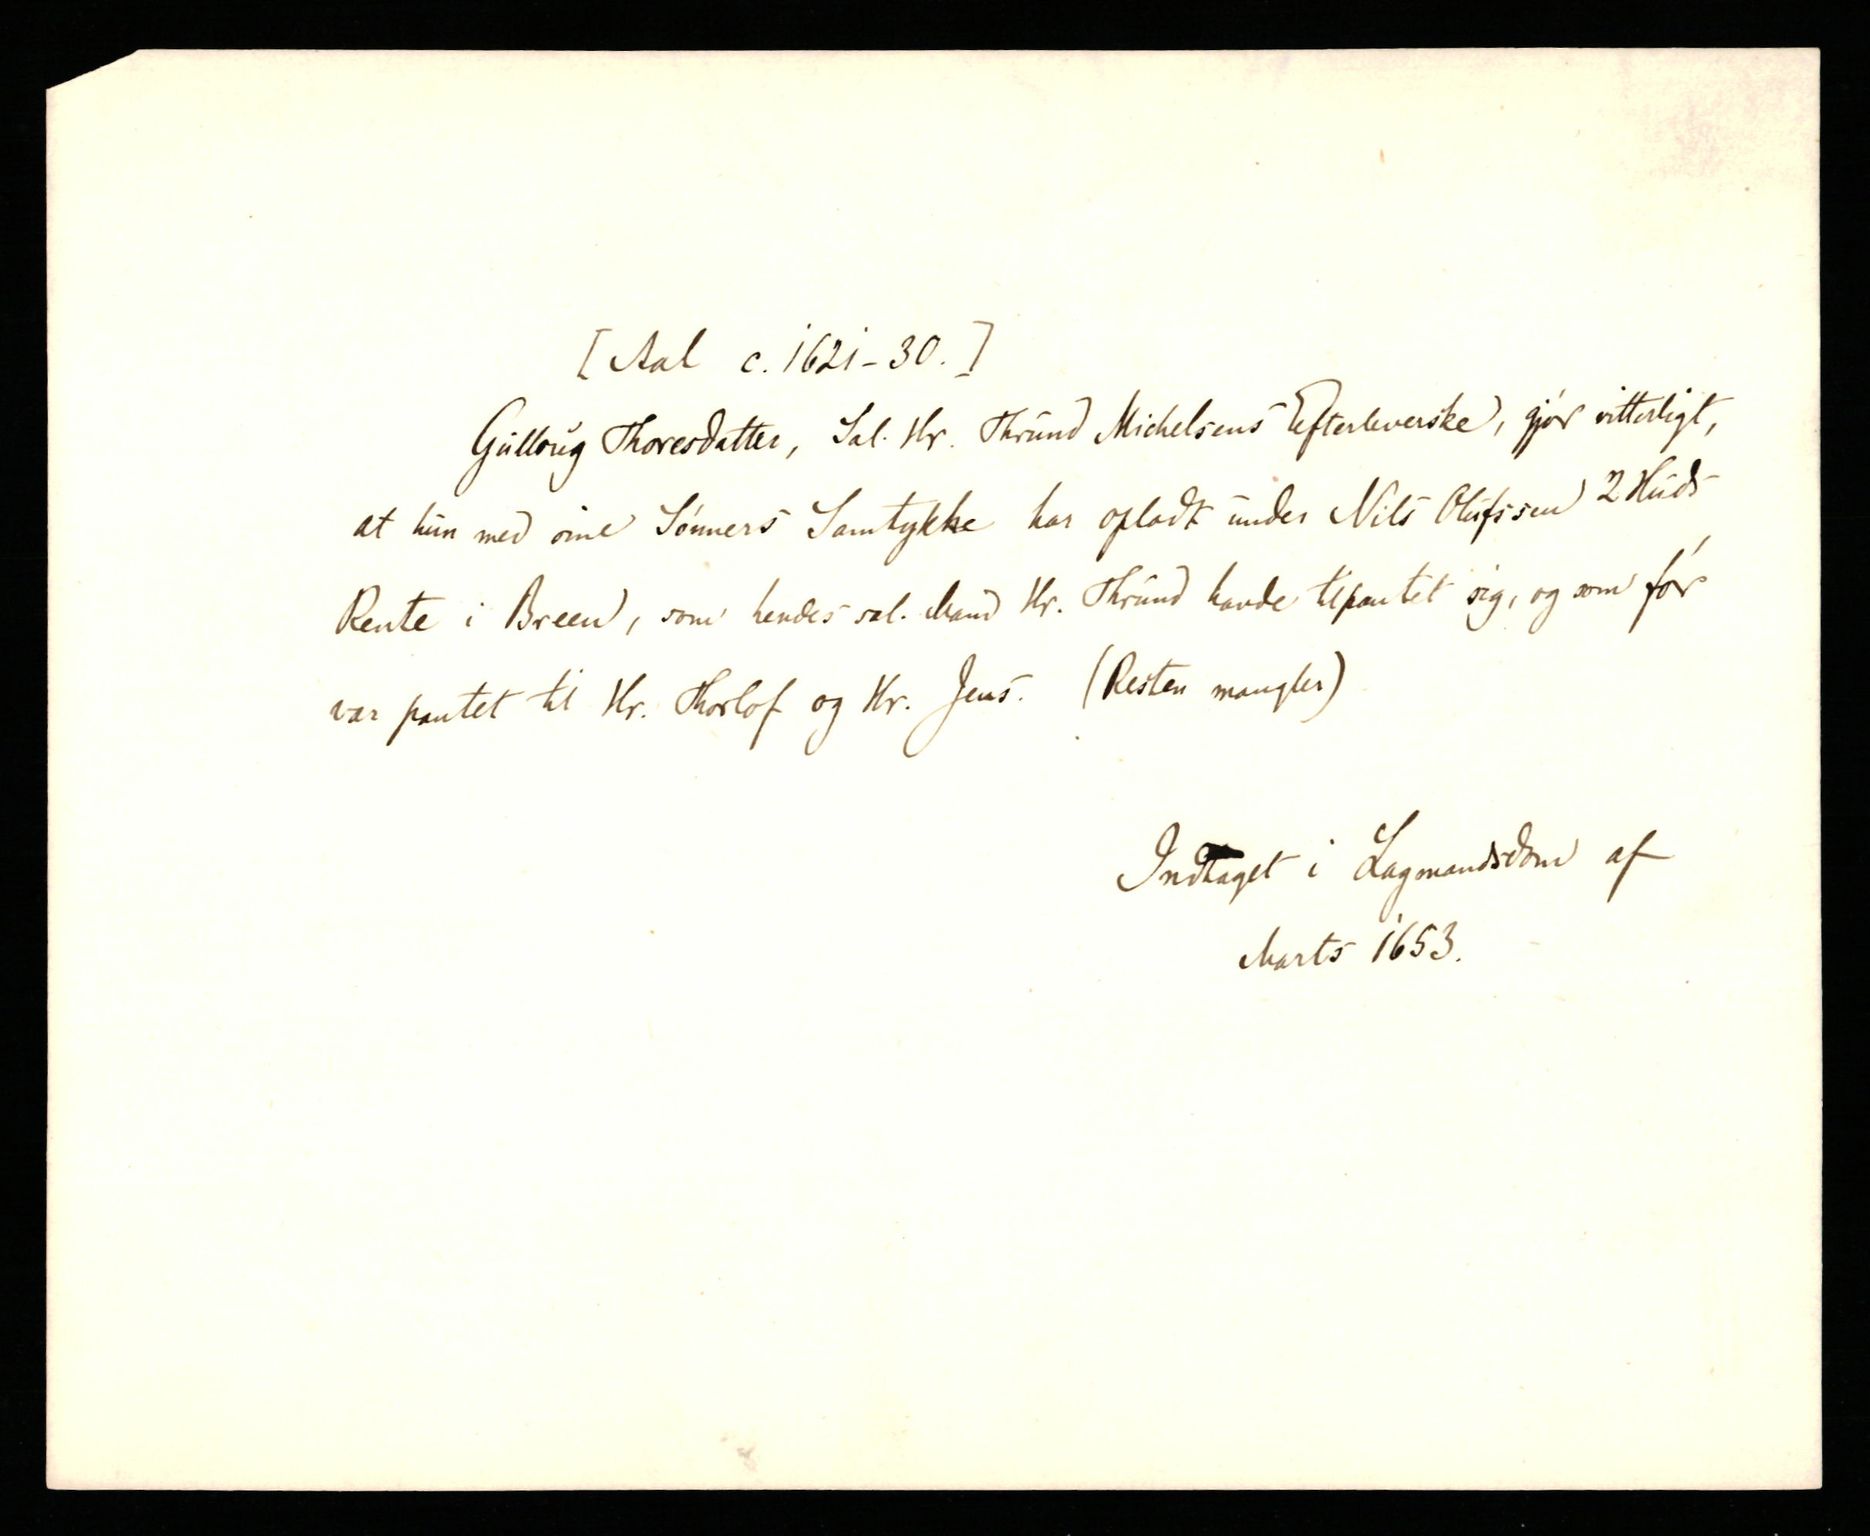 [Aal c. 1621-30.]
Gullaug Thoresdatter, Sal. Hr. Thrund Michelsens Efterleverske, gjør vitterligt,
at hun med sine Sønners Samtykke har opladt under Nils Olufssen 2 Huds
Rente i Breen, som hendes sal. Mand Hr. Thrund havde tilpantet sig, og som før
var pantet til Hr. Thorlof og Hr. Jens. (Resten mangler)
Indtaget i Lagmandsdom af
Marts 1653.